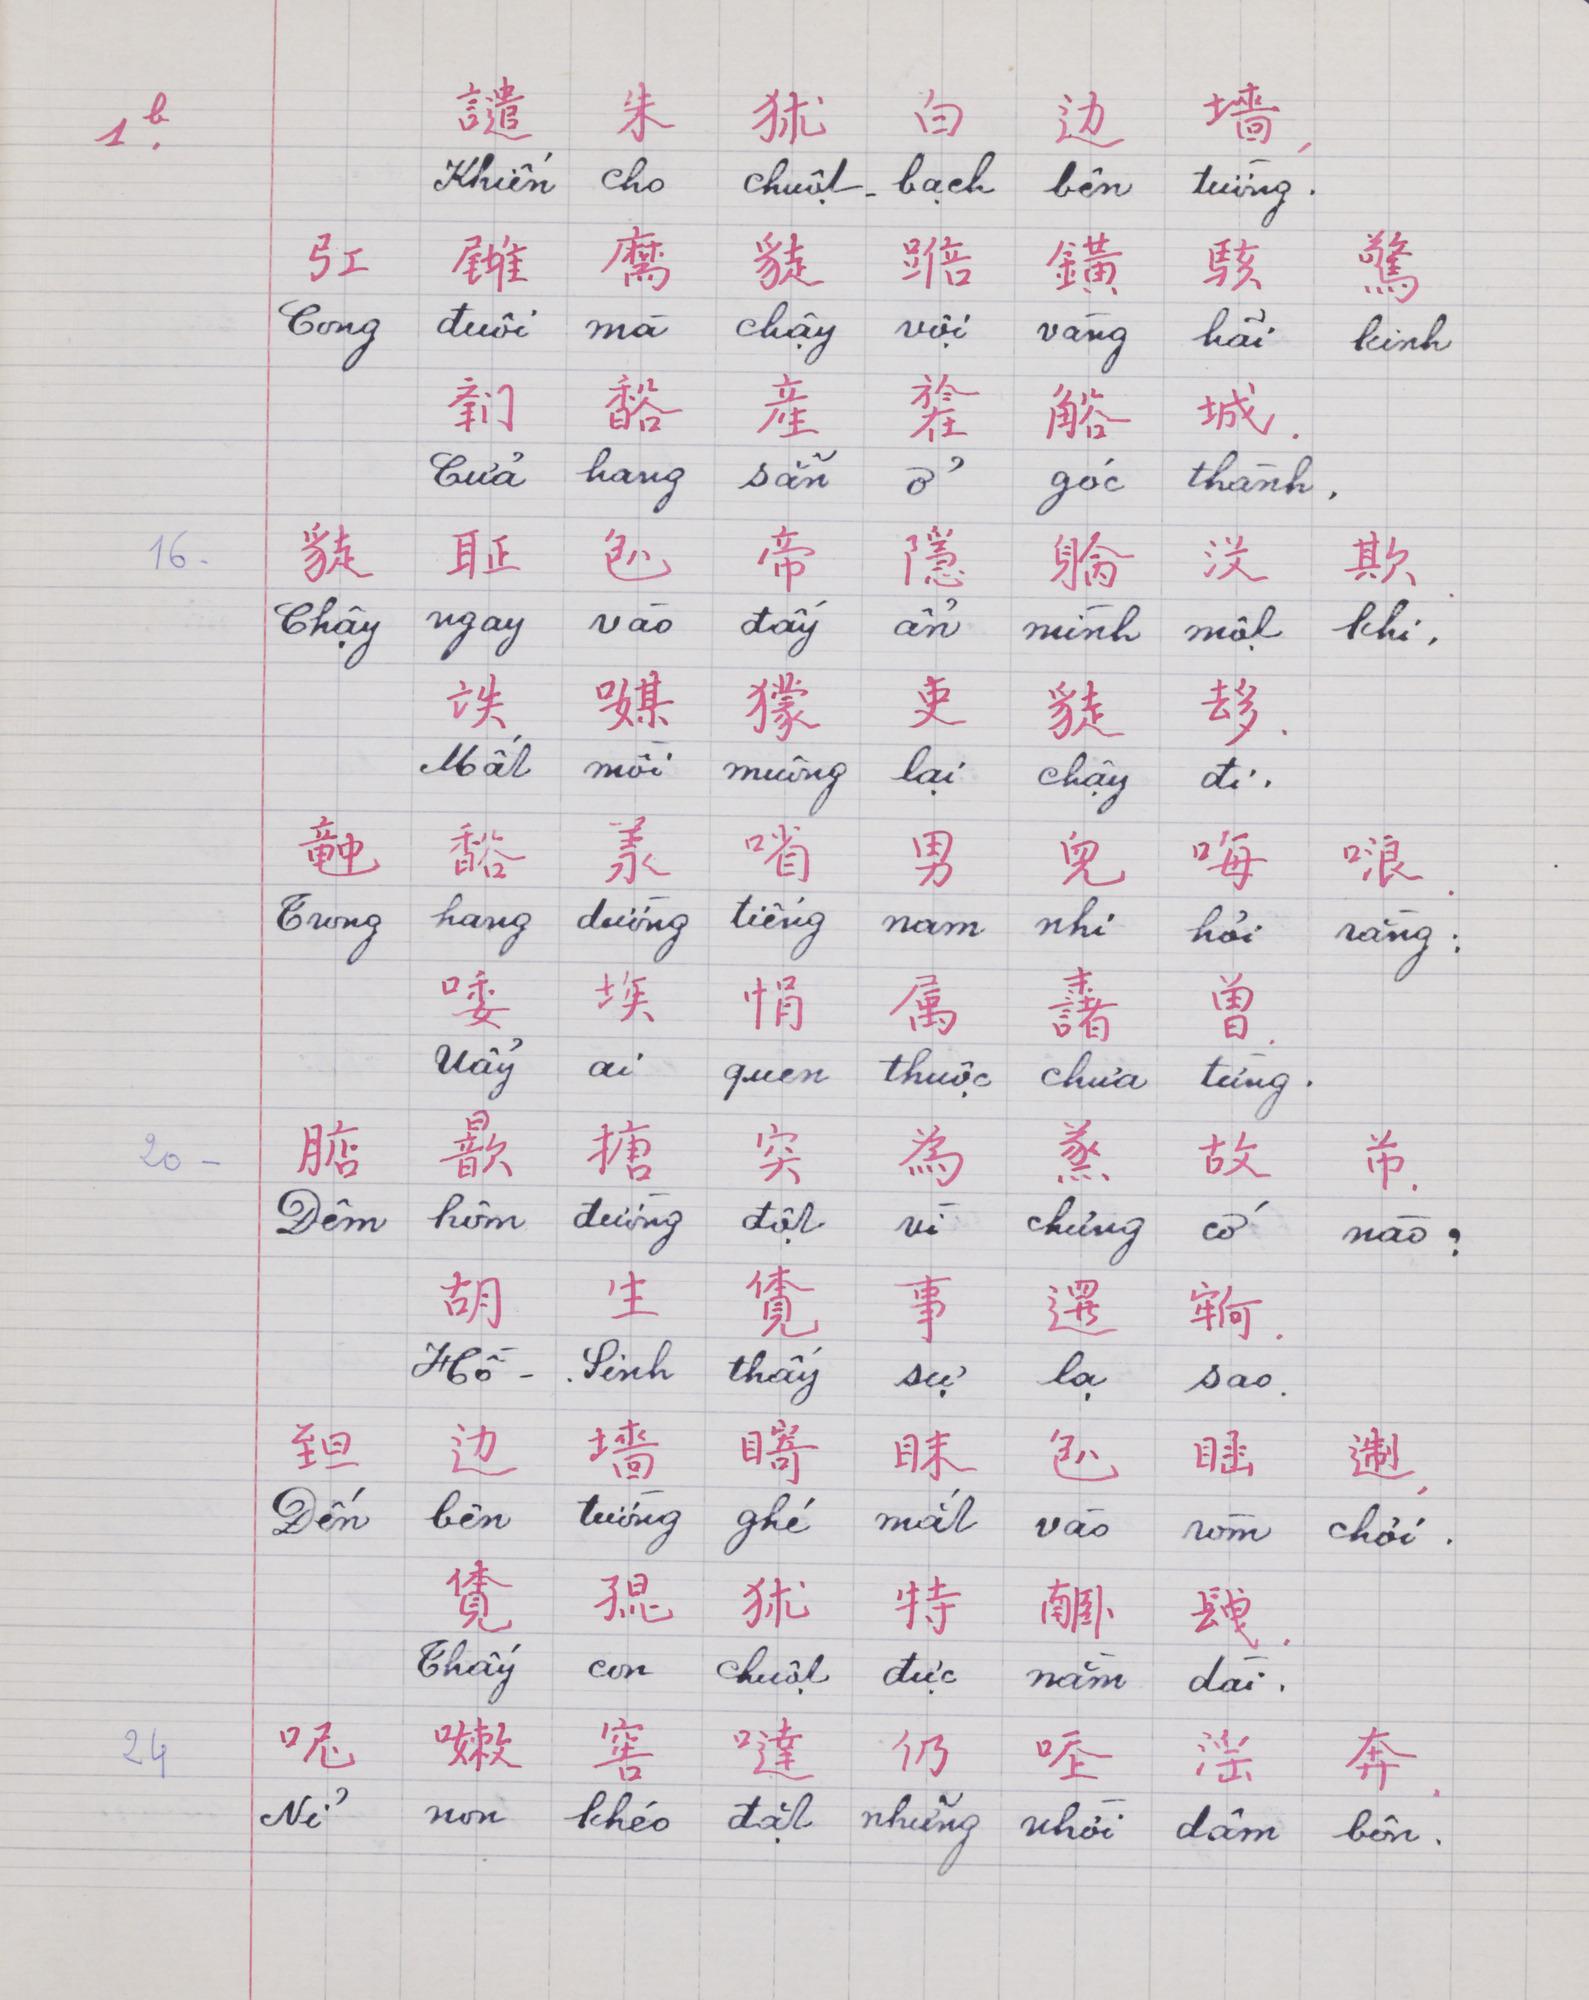 1b.
譴 朱 㹥 白 边 墻,
Khiến cho chuột-bạch bên tường.
引 𡳪 麿 𧼋 踣 鐄 駭 驚
Cong đuôi mà chạy vội vàng hãi kinh
𨷯 𧯄 産 於 𧣳 城.
Cửa hang sẵn ở góc thành,
16. 𧼋 𦔳 𠓨 帝 隱 躺 没 欺.
Chạy ngay vào đấy ẩn mình một khi,
𧵳 𠰃 獴 吏 𧼋 𠫾.
Mất mồi muông lại chạy đi.
𥪝 𧯄 羕 㗂 男 兒 𠳨 哴.
Trong hang dường tiếng nam nhi hỏi rằng:
唩 埃 悁 属 𣗓 曽.
Uẩy ai quen thuộc chưa từng.
20- 𣎀 歆 搪 突 為 蒸 故 芇.
Đêm hôm đường đột vì chưng cớ nào?
胡 生 𧡊 事 𨔍 𡫡.
Hồ-Sinh thấy sự lạ sao.
𦤾 边 墻 𥊘 眜 𠓨 𥆁 𨔾,
Đến bên tường ghé mắt vào ròm chơi.
𧡊 𡥵 㹥 特 𦣰 𨱽.
Thấy con chuột đực nằm dài.
24 呢 嫩 窖 噠 仍 𠳒 滛 奔.
Nỉ non khéo đặt những nhời dâm bôn.